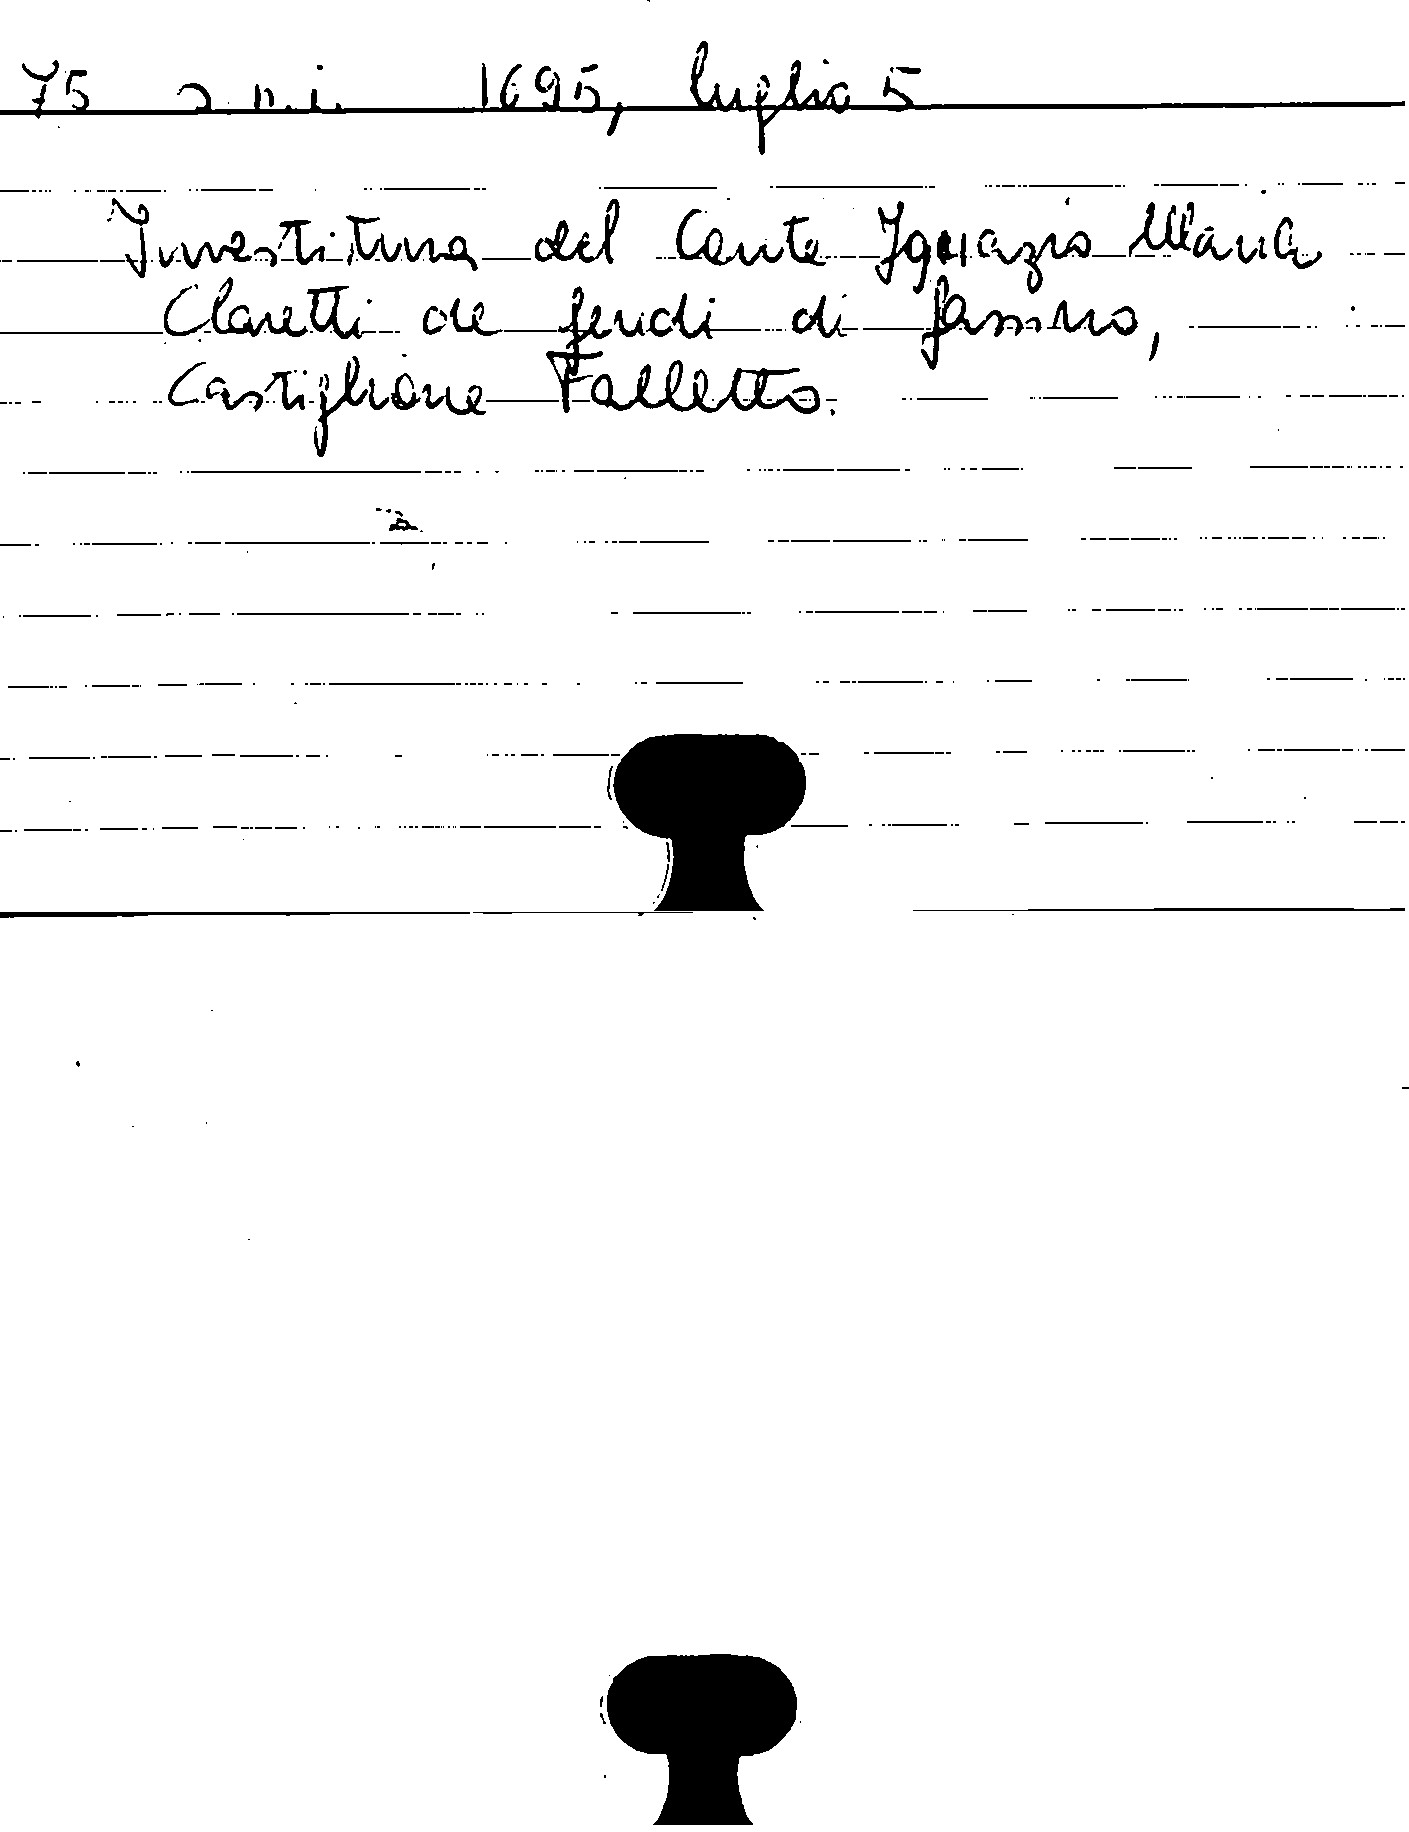 75 2 n.i. 1695, luglio 5
Investitura del Conte Ignazio Maria
Claretti de feudi di Gassino,
Castiglione Falletto.